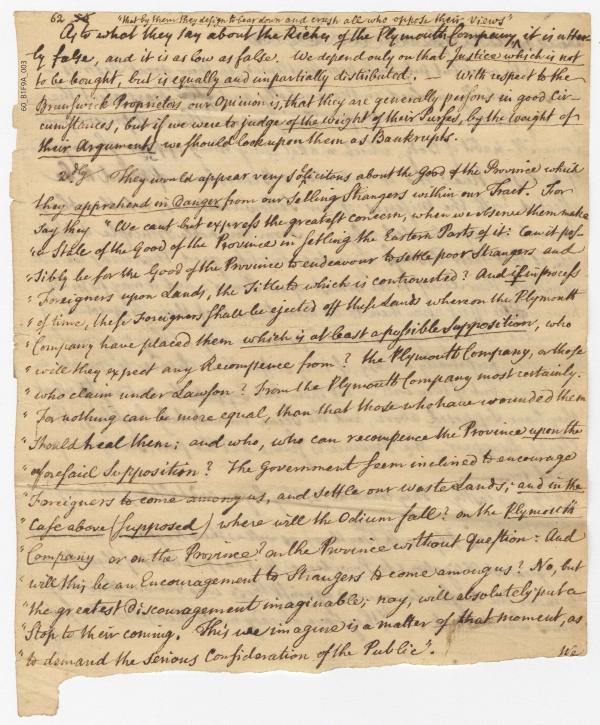 62 "that by them they design to bear down and crush all who oppose their Views"
As to what they say about the Riches of the Plymouth Company, it is utter-
ly false, and it is as low as false. We depend only on that Justice which is not
to be bought, but is equally and impartially distributed. — With respect to the
Brunswick Proprietors our Opinion is, that they are generally persons in good Cir-
cumstances, but if we were to judge of the weight of their Purses, by the Weight of
their Arguments we should look upon them as Bankrupts.
2dly They would appear very solicitous about the Good of the Province which
they apprehend in Danger from our Settling Strangers within our Tract. For
Say they "We cant but express the greatest concern, when we observe them make
"a Stale of the Good of the Province in setling the Eastern Parts of it: Can it pos-
"sibly be for the Good of the Province to endeavour to settle poor Strangers and
"Foreigners upon Lands, the Title to which is controverted? And if in process
"of time, these Foreigners shall be ejected off these Lands whereon the Plymouth
"Company have placed them which is at least a possible Supposition, who
"will they expect any Recompense from? the Plymouth Company, or those
"who claim under Lawson? From the Plymouth Company most certainly.
"For nothing can be more equal, than that those who have wounded them
"Should heal them; and who, who can recompence the Province upon the
"aforesaid Supposition? The Government seem inclined to encourage
"Foreigners to come among us, and settle our waste Lands; and in the
"Case above (supposed) where will the Odium fall? on the Plymouth
"Company or on the Province? on the Province without Question: And
"will this be an Encouragement to Strangers to come among us? No, but
"the greatest discouragement imaginable; nay, will absolutely put a
"Stop to their coming. This we imagine is a matter of that moment, as
"to demand the serious Consideration of the Public".
We
60_B1F9A_003